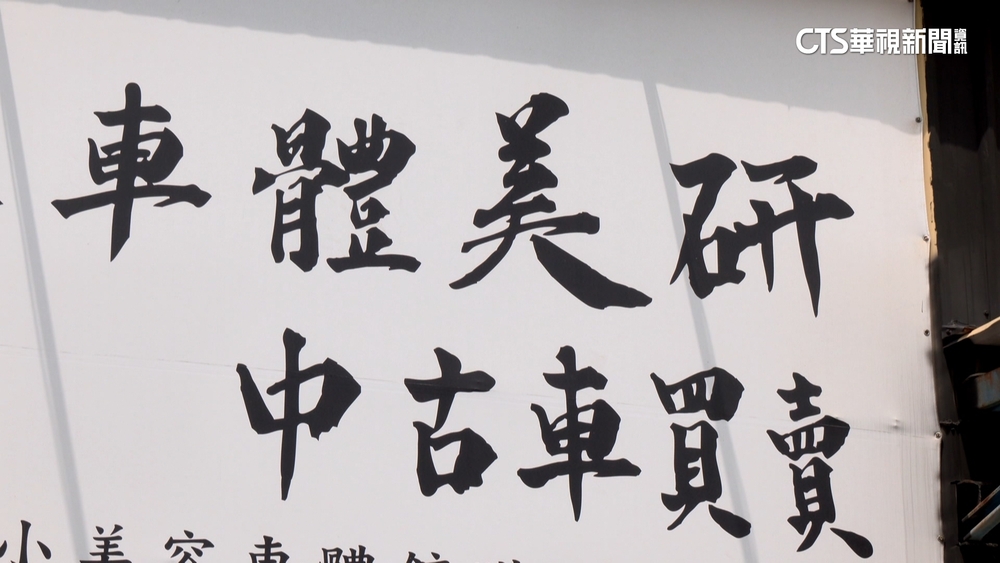 CTS華視新聞資訊
車體美研
中古車買賣
小美容車體